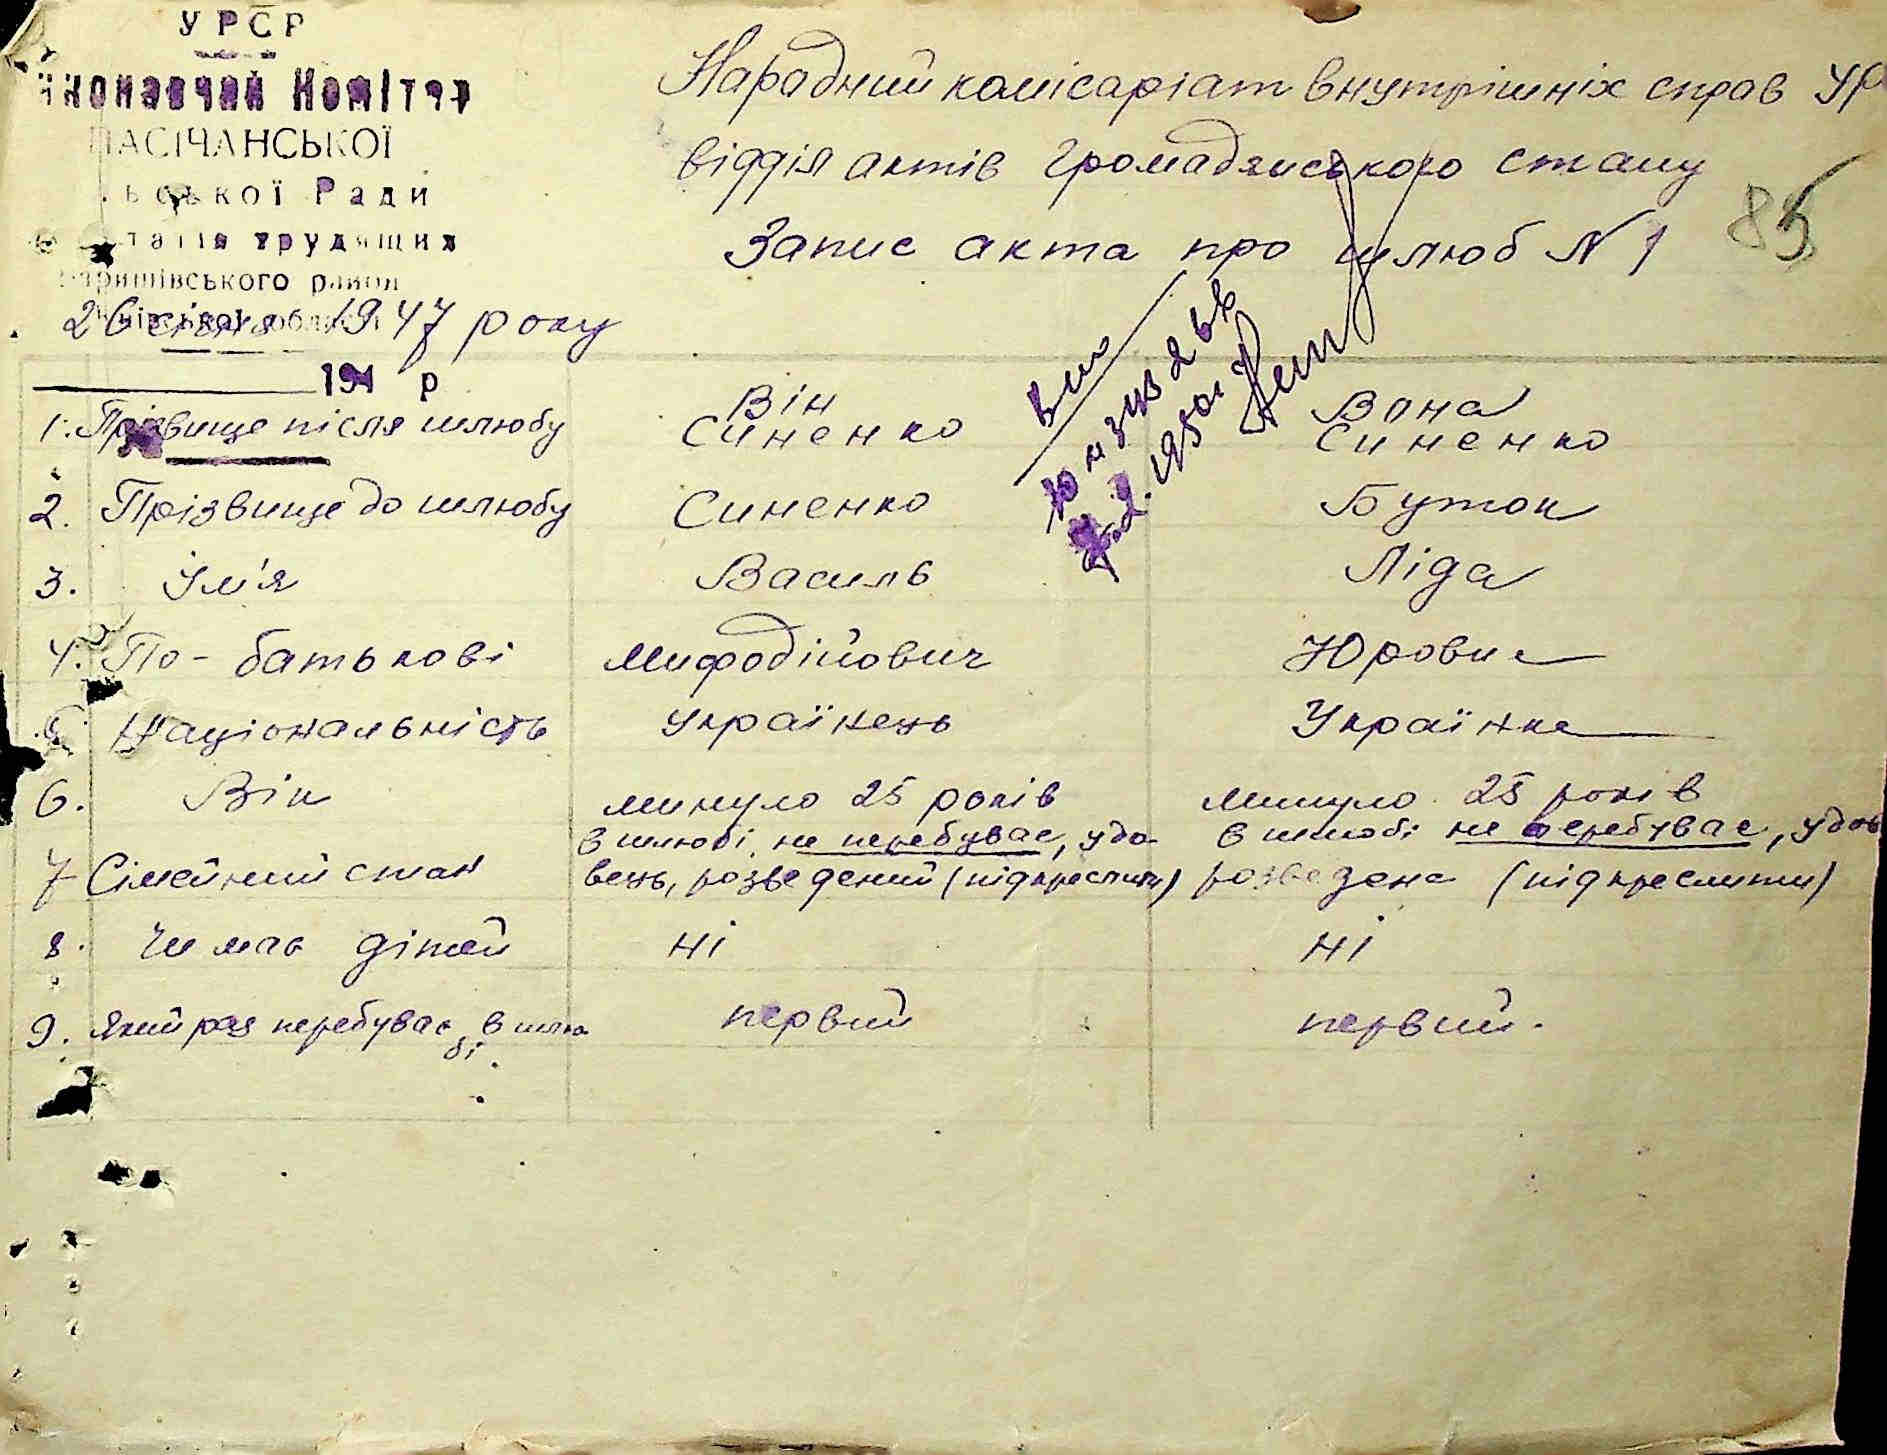 УРСР
Виконавчий Комітет
ПАСІЧАНСЬКОЇ
ської Ради
трудящих
Баришівського район
області
26 січня 1947 року
194 р
Народний комісаріат внутрішніх справ УР
відділ актів громадянського стану
Запис акта про шлюб N 1
85
Він
Вона
1. Прізвище після шлюбу Синенко Синенко
2. Прізвище до шлюбу Синенко Буток
3. Ім'я Василь Ліда
4. По-батькові Мифодійович Юровна
5. Національність Українець Українка
6. Вік минуло 25 років минуло 25 років
7 Сімейний стан в шлюбі не перебуває, удовець, розведений (підкреслити) в шлюбі не перебуває, удов розведена (підкреслити)
8. Чи має дітей ні ні
9. Який раз перебуває в шлюбі первий первий.